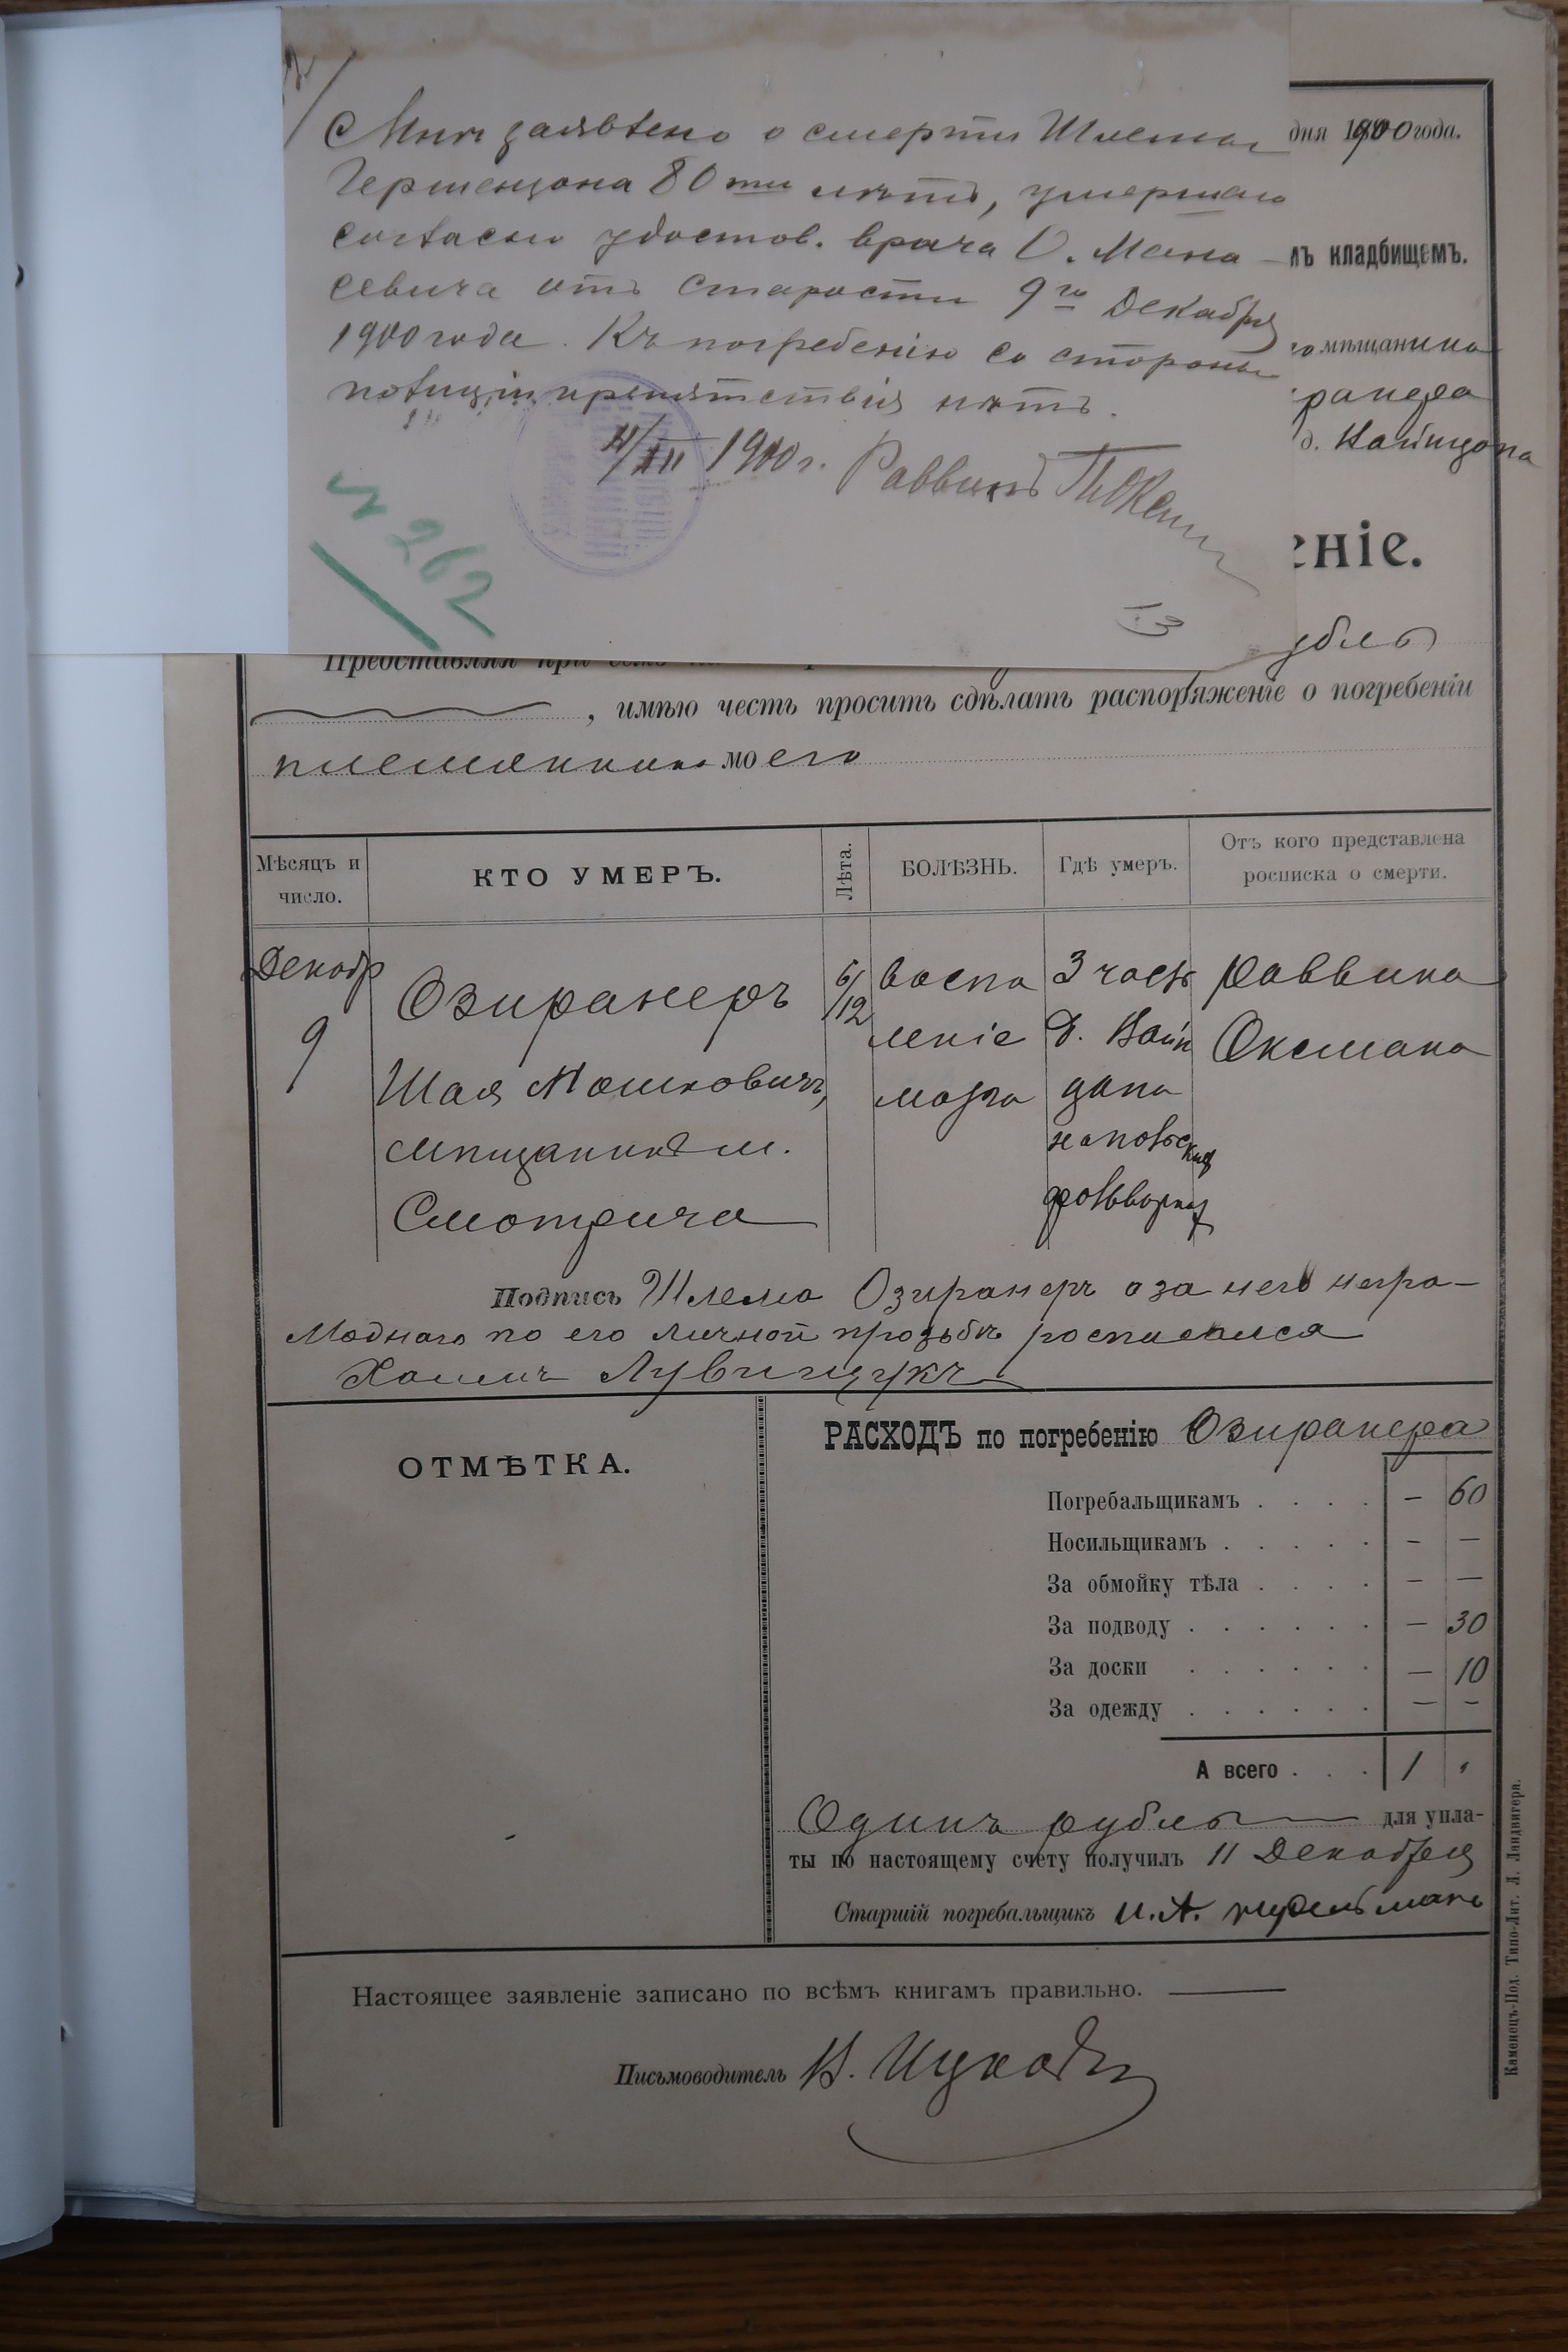 Мнѣ заявлено о смерти Шлема
Гершенцона 80ти лѣтъ, умершаго
согласно удостов. врача О. Мана-
севича отъ старости 9го Декабря
1900 года. Къ погребенію со стороны
полиціи препятствія нѣтъ.
11/XII 1900 г. Раввинъ
№ 262
13
дня 1900 года.
лъ кладбищемъ.
го мѣщанина
ранера
д. Вайнцопа
еніе.
убль
Представляя при семъ
, имѣю честь просить сдѣлать распоряженіе о погребеніи
племянника моего
Мѣсяцъ и число.
КТО УМЕРЪ.
Лѣта.
БОЛѢЗНЬ.
Гдѣ умеръ.
Отъ кого представлена росписка о смерти.
Декабр 9
Озиранеръ
Шая Мошковичъ,
мѣщанинъ м.
Смотрича
6/12
воспа
леніе
мозга
3 часть
д. Вайн
цопа
на польск
фольварках
Раввина
Оксмана
Подпись Шлема Озиранеръ а за него негра-
мотнаго по его личной прозьбѣ росписался
Хаимъ
ОТМѢТКА.
РАСХОДЪ по погребенію Озиранера
Погребальщикамъ . . . . – 60
Носильщикамъ . . . . . – –
За обмойку тѣла . . . . – –
За подводу . . . . . . – 30
За доски . . . . . . – 10
За одежду . . . . . . – –
А всего . . . 1 "
Одинъ рубль для упла-
ты по настоящему счету получилъ 11 Декабря
Старшій погребальщикъ И. А.
Настоящее заявленіе записано по всѣмъ книгамъ правильно.
Письмоводитель
Каменецъ-Под. Типо-Лит. Л. Ландвигера.